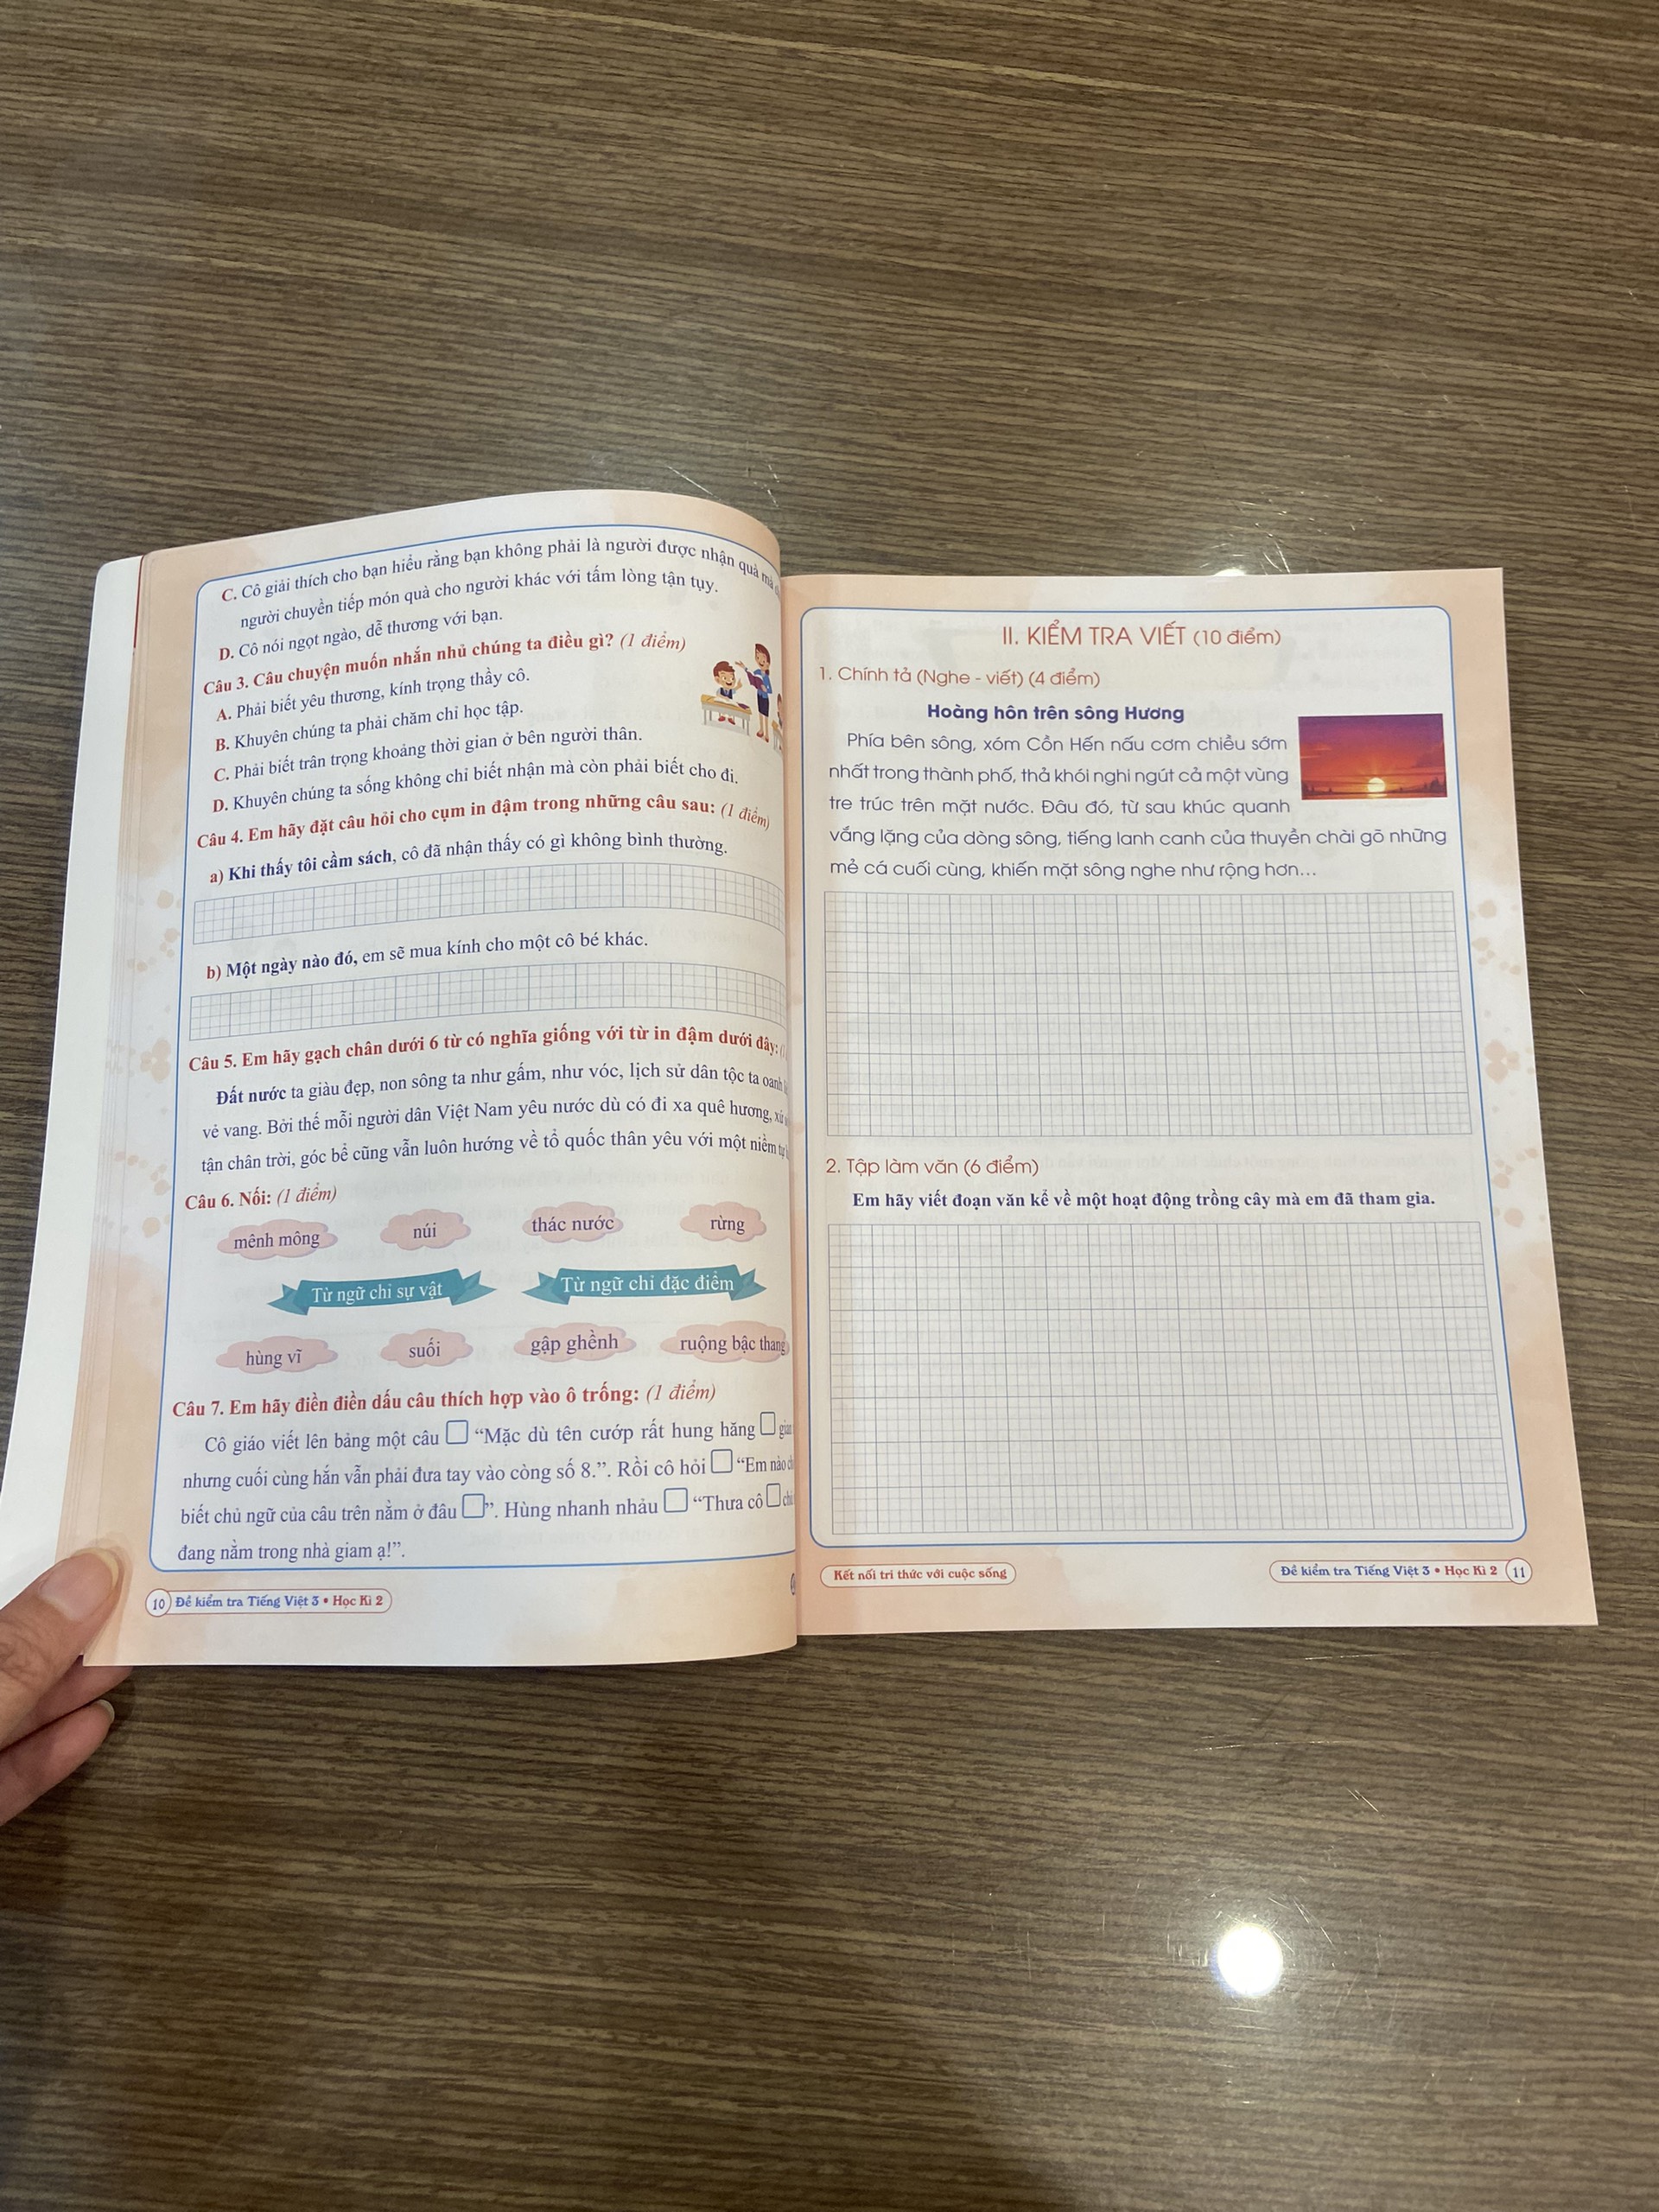 C. Cô giải thích cho bạn hiểu rằng bạn không phải là người được nhận quà mà
người chuyển tiếp món quà cho người khác với tấm lòng tận tụy.
D. Cô nói ngọt ngào, dễ thương với bạn.
Câu 3. Câu chuyện muốn nhắn nhủ chúng ta điều gì? (1 điểm)
A. Phải biết yêu thương, kính trọng thầy cô.
B. Khuyên chúng ta phải chăm chỉ học tập.
C. Phải biết trân trọng khoảng thời gian ở bên người thân.
D. Khuyên chúng ta sống không chỉ biết nhận mà còn phải biết cho đi.
Câu 4. Em hãy đặt câu hỏi cho cụm in đậm trong những câu sau: (1 điểm)
a) Khi thấy tôi cầm sách, cô đã nhận thấy có gì không bình thường.
b) Một ngày nào đó, em sẽ mua kính cho một cô bé khác.
Câu 5. Em hãy gạch chân dưới 6 từ có nghĩa giống với từ in đậm dưới đây:
Đất nước ta giàu đẹp, non sông ta như gấm, như vóc, lịch sử dân tộc ta oanh
vẻ vang. Bởi thế mỗi người dân Việt Nam yêu nước dù có đi xa quê hương, xứ
tận chân trời, góc bể cũng vẫn luôn hướng về tổ quốc thân yêu với một niềm
Câu 6. Nối: (1 điểm)
mênh mông núi thác nước rừng
Từ ngữ chỉ sự vật Từ ngữ chỉ đặc điểm
hùng vĩ suối gập ghềnh ruộng bậc thang
Câu 7. Em hãy điền điền dấu câu thích hợp vào ô trống: (1 điểm)
Cô giáo viết lên bảng một câu □ “Mặc dù tên cướp rất hung hăng □
nhưng cuối cùng hắn vẫn phải đưa tay vào còng số 8.”. Rồi cô hỏi □ “Em nào
biết chủ ngữ của câu trên nằm ở đâu □”. Hùng nhanh nhảu □ “Thưa cô □
đang nằm trong nhà giam ạ!”.
10 Đề kiểm tra Tiếng Việt 3 • Học Kì 2
II. KIỂM TRA VIẾT (10 điểm)
1. Chính tả (Nghe - viết) (4 điểm)
Hoàng hôn trên sông Hương
Phía bên sông, xóm Cồn Hến nấu cơm chiều sớm
nhất trong thành phố, thả khói nghi ngút cả một vùng
tre trúc trên mặt nước. Đâu đó, từ sau khúc quanh
vắng lặng của dòng sông, tiếng lanh canh của thuyền chài gõ những
mẻ cá cuối cùng, khiến mặt sông nghe như rộng hơn...
2. Tập làm văn (6 điểm)
Em hãy viết đoạn văn kể về một hoạt động trồng cây mà em đã tham gia.
Kết nối tri thức với cuộc sống
Đề kiểm tra Tiếng Việt 3 • Học Kì 2 11